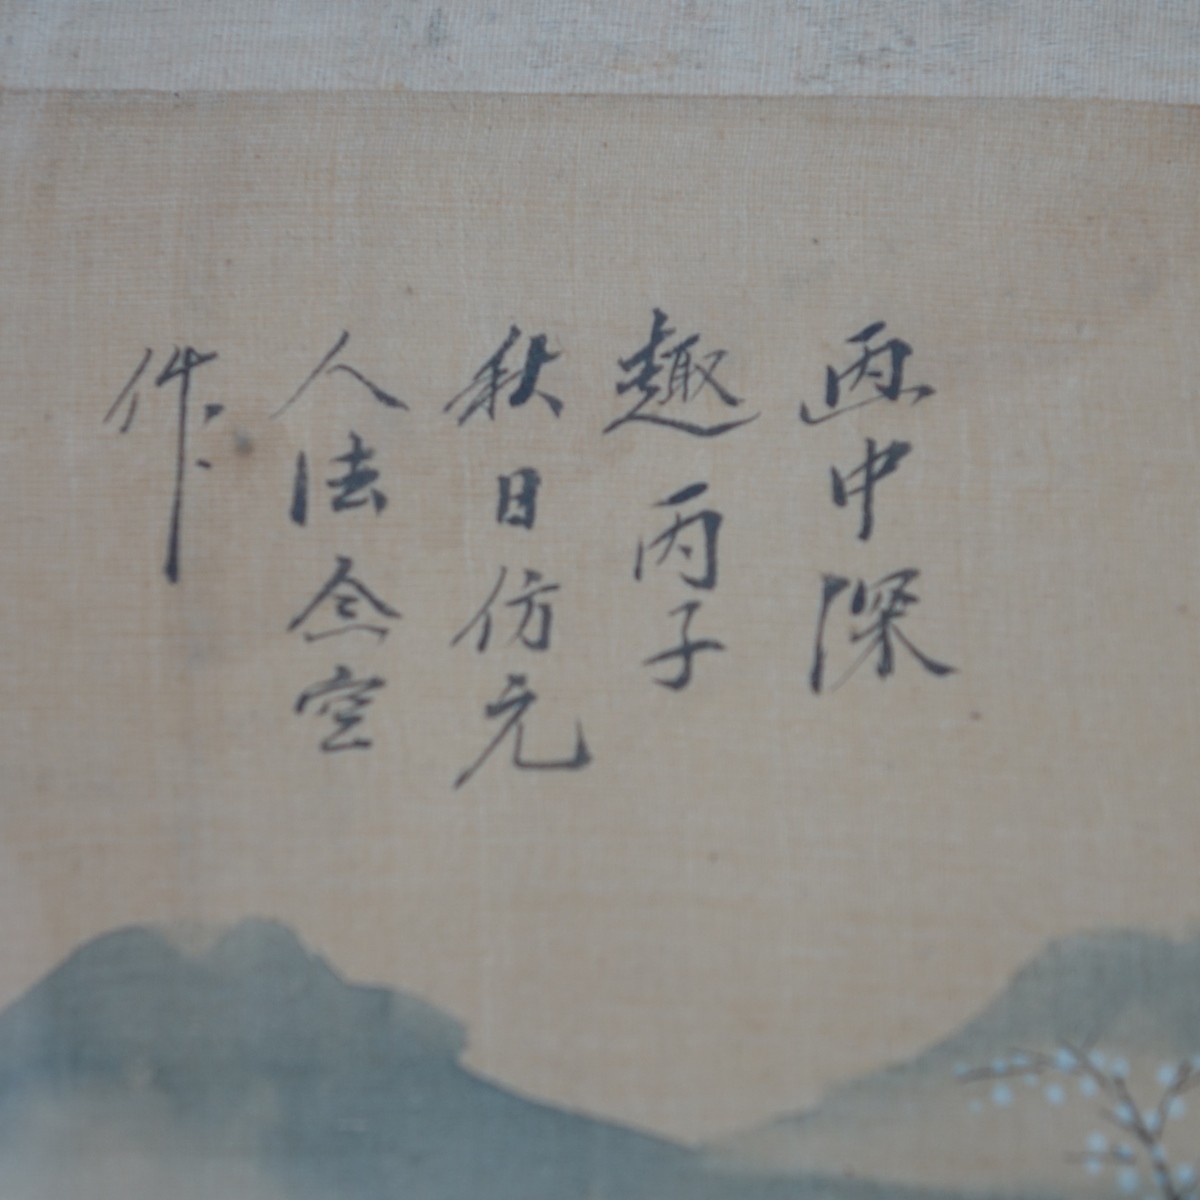 画中深
趣丙子
秋日仿元
人法念空
作